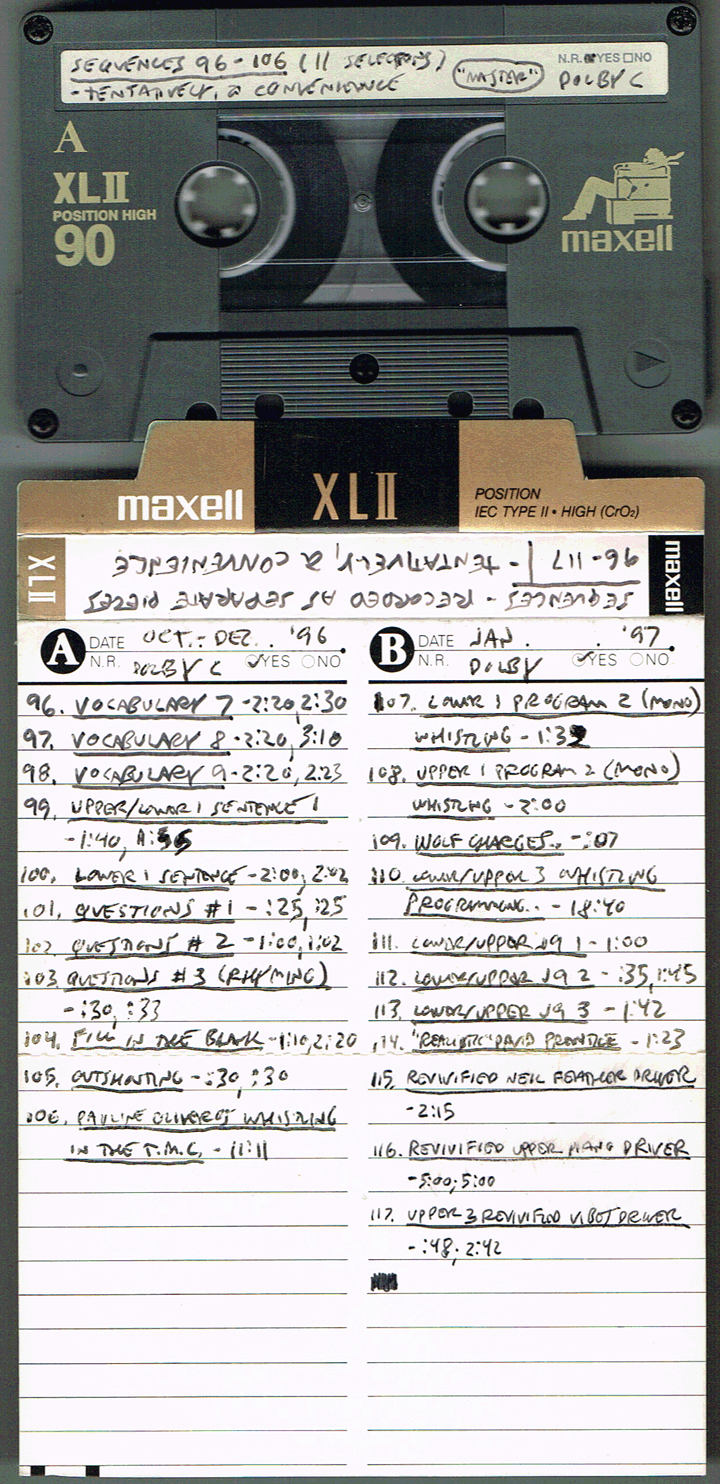 SEQUENCES 96-106 (11 SELECTIONS)
- TENTATIVELY, A CONVENIENCE
"MASTER"
N.R. YES NO
DOLBY C
A
XLII
POSITION HIGH
90
maxell
maxell
XLII
POSITION
IEC TYPE II • HIGH (CrO₂)
XLII
maxell
SEQUENCES - RECORDED AS SEPARATE PIECES
96-117 - TENTATIVELY, A CONVENIENCE
A DATE OCT.-DEC. '96
N.R. DOLBY C YES NO
96. VOCABULARY 7 -2:20, 2:30
97. VOCABULARY 8 -2:20, 3:10
98. VOCABULARY 9 -2:20, 2:23
99. UPPER/LOWER 1 SENTENCE 1
-1:40,
100. LOWER 1 SENTENCE -2:00, 2:02
101. QUESTIONS #1 - :25, :25
102. QUESTIONS #2 -1:00, 1:02
103. QUESTIONS #3 (RHYMING)
- :30, :33
104. FILL IN THE BLANK -1:10, 2:20
105. OUTSHOUTING - :30, :30
106. PAULINE OLIVEROS WHISTLING
IN THE T.M.C. - 11:11
B DATE JAN. '97
N.R. DOLBY YES NO
107. LOWER 1 PROGRAM 2 (MONO)
WHISTLING - 1:32
108. UPPER 1 PROGRAM 2 (MONO)
WHISTLING - 2:00
109. WOLF CHARGES.. - :07
110. LOWER/UPPER 3 WHISTLING
PROGRAMMING.. - 18:40
111. LOWER/UPPER J9 1 - 1:00
112. LOWER/UPPER J9 2 - :35, 1:45
113. LOWER/UPPER J9 3 - 1:42
114. "REALISTIC" DAVID PRENTICE - 1:23
115. REVIVIFIED NEIL FEATHER DRIVER
-2:15
116. REVIVIFIED UPPER PIANO DRIVER
-5:00, 5:00
117. UPPER 3 REVIVIFIED VIBOT DRIVER
- :48, 2:42